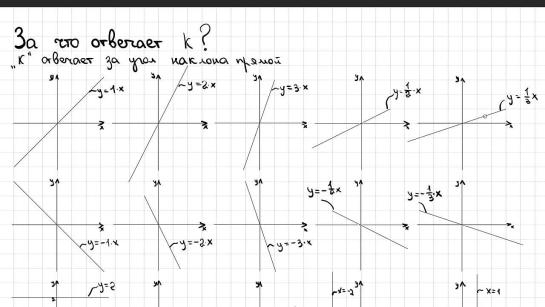 За что отвечает k?
„к" отвечает за угол наклона прямой
y y y y y
y=1·x y=2·x y=3·x y=1/2·x y=1/3·x
x x x x x
y y y y y
y=-1·x y=-2·x y=-3·x y=-1/2·x y=-1/3·x
x x x x x
y y y y y
y=2 x=-2 x=1
2